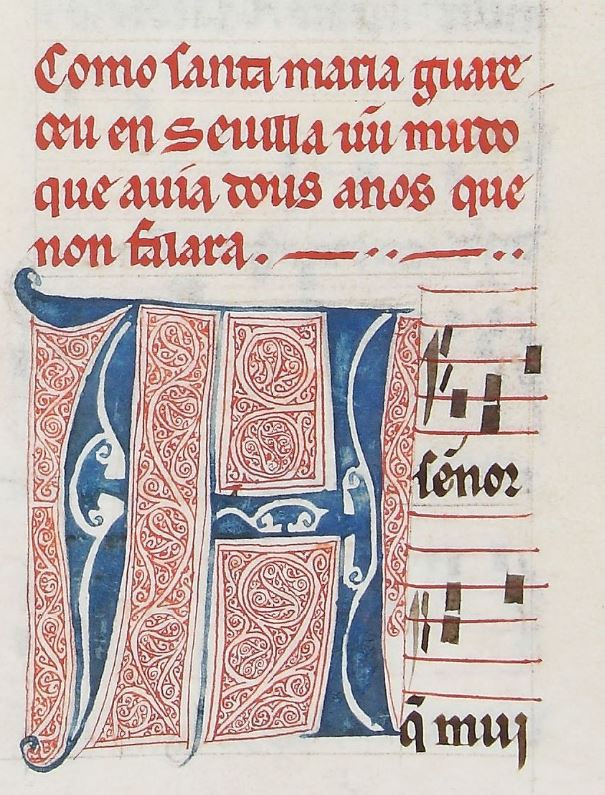 Como santa maria guare
ceu en Seuilla uũ mudo
que auia dous anos que
non falara.
A
sẽnor
q̃ muj